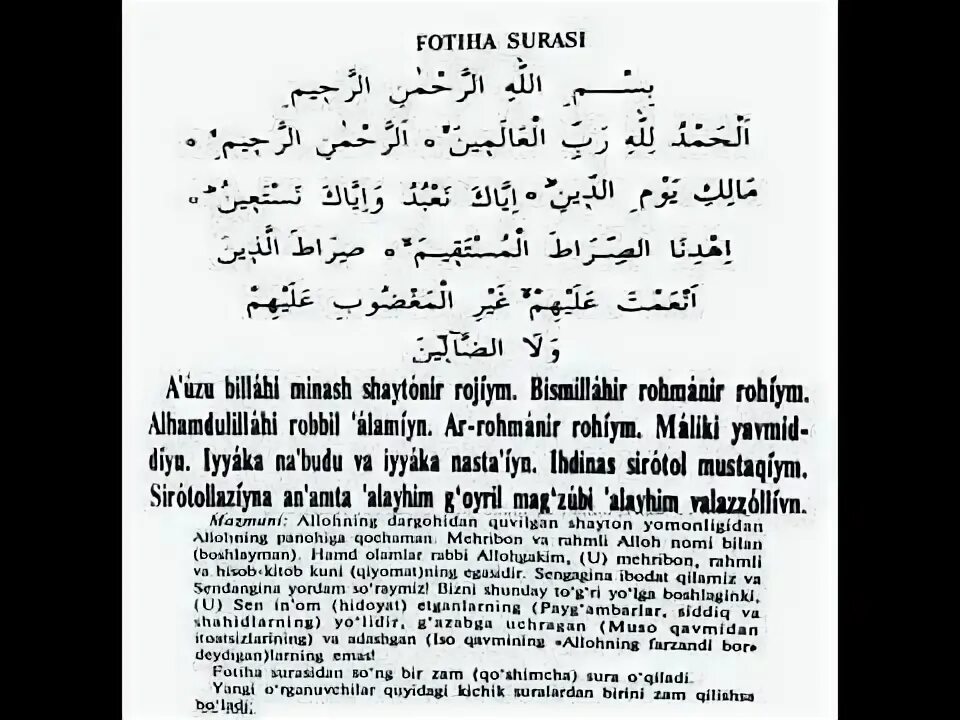 FOTIHA SURASI
بِسْمِ اللّٰهِ الرَّحْمٰنِ الرَّحِيمِ
اَلْحَمْدُ لِلّٰهِ رَبِّ الْعَالَمِينَۙ ه اَلرَّحْمٰنِ الرَّحِيمِۙ ه
مَالِكِ يَوْمِ الدِّينِۜ ه اِيَّاكَ نَعْبُدُ وَاِيَّاكَ نَسْتَعِينُۜ ه
اِهْدِنَا الصِّرَاطَ الْمُسْتَقِيمَۙ ه صِرَاطَ الَّذِينَ
اَنْعَمْتَ عَلَيْهِمْۙ غَيْرِ الْمَغْضُوبِ عَلَيْهِمْ
وَلَا الضَّٓالِّينَ
A'úzu billáhi minash shaytónir rojíym. Bismilláhir rohmánir rohíym.
Alhamdulilláhi robbil 'álamíyn. Ar-rohmánir rohíym. Máliki yavmid-
díyn. Iyyáka na'budu va iyyáka nasta'íyn. Ihdinas sirótol mustaqíym.
Sirótollazíyna an'amta 'alayhim g'oyril mag'zúbi 'alayhim valazzóllíyn.
Mazmuni: Allohning dargohidan quvilgan shayton yomonligidan
Allohning panohiga qochaman. Mehribon va rahmli Alloh nomi bilan
(boshlayman). Hamd olamlar rabbi Allohgakim, (U) mehribon, rahmli
va hisob-kitob kuni (qiyomat)ning egasidir. Sengagina ibodat qilamiz va
Sendangina yordam so'raymiz! Bizni shunday to'g'ri yo'lga boshlaginki,
(U) Sen in'om (hidoyat) etganlarning (Payg'ambarlar, siddiq va
shahidlarning) yo'lidir, g'azabga uchragan (Muso qavmidan
itoatsizlarining) va adashgan (Iso qavmining «Allohning farzandi bor»
deydigan)larning emas!
Fotiha surasidan so'ng bir zam (qo'shimcha) sura o'qiladi.
Yangi o'rganuvchilar quyidagi kichik suralardan birini zam qilishsa
bo'ladi.